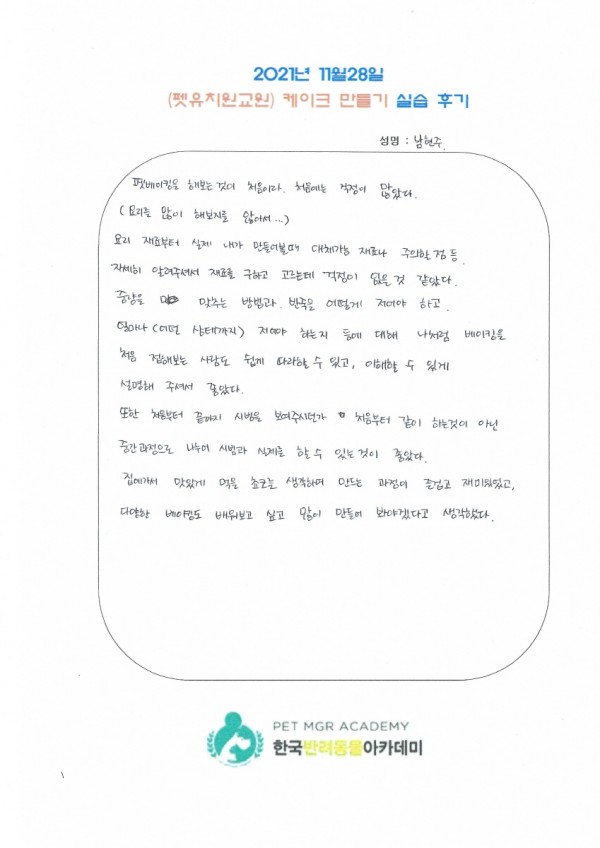 2021년 11월28일
(펫유치원교원) 케이크 만들기 실습 후기
성명 : 남현주
펫베이킹을 해보는것이 처음이라. 처음에는 걱정이 많았다.
(요리를 많이 해보지를 않아서...)
요리 재료부터 실제 내가 만들어볼때 대체가능 재료나 주의할점 등
자세히 알려주셔서 재료를 구하고 고르는데 걱정이 없을 것 같았다.
중량을 맞추는 방법과 반죽을 어떻게 저어야 하고.
얼마나 (어떤 상태까지) 저어야 하는지 등에 대해 나처럼 베이킹을
처음 접해보는 사람도 쉽게 따라할 수 있고, 이해할 수 있게
설명해 주셔서 좋았다.
또한 처음부터 끝까지 시범을 보여주시던가 처음부터 같이 하는것이 아닌
중간과정으로 나누어 시범과 실제를 할 수 있는것이 좋았다.
집에가서 맛있게 먹을 초코를 생각하며 만드는 과정이 즐겁고 재미있었고,
다양한 베이킹도 배워보고 싶고 많이 만들어 봐야겠다고 생각했다.
PET MGR ACADEMY
한국반려동물아카데미